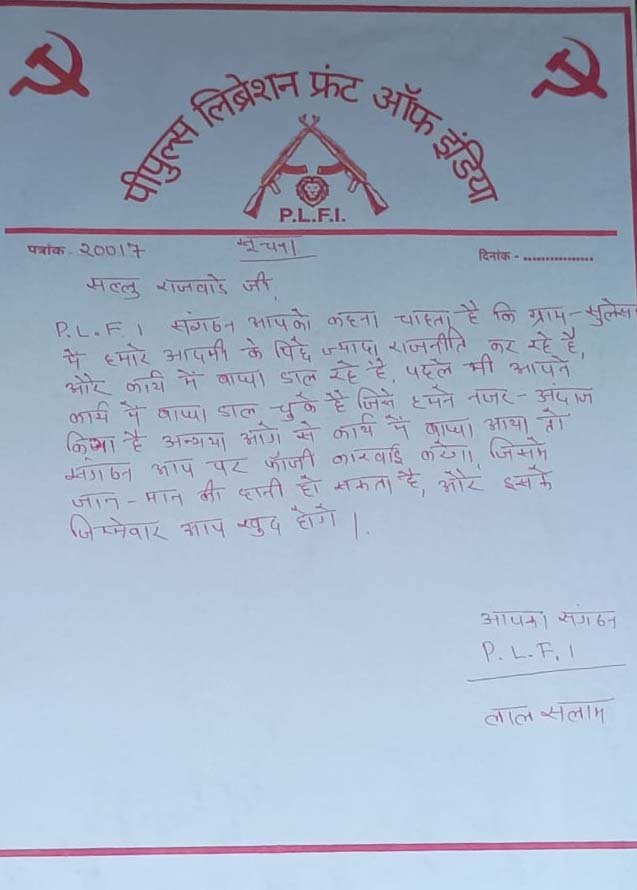 पीपुल्स लिब्रेशन फ्रंट ऑफ इंडिया
P.L.F.I.
पत्रांक - 20017 सूचना दिनांक - ................
सल्लु राजवाडे जी,
P.L.F.I संगठन आपको कहना चाहता है कि ग्राम - सुलेसा
में हमारे आदमी के पिछे ज्यादा राजनीति कर रहे है,
और कार्य में बाधा डाल रहे है, पहले भी आपने
कार्य में बाधा डाल चुके है जिसे हमने नजर - अंदाज
किया है अन्यथा आगे से कार्य में बाधा आया तो
संगठन आप पर फौजी कारवाई करेगा, जिसमे
जान - मान की हानी हो सकता है, और इसके
जिम्मेवार आप खुद होंगे।
आपका संगठन
P.L.F.I
लाल सलाम